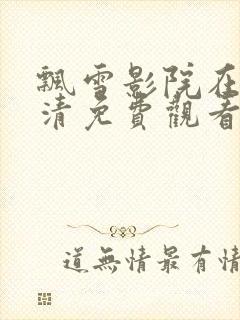 飄雪影院在
清免費觀看
道無情最有情